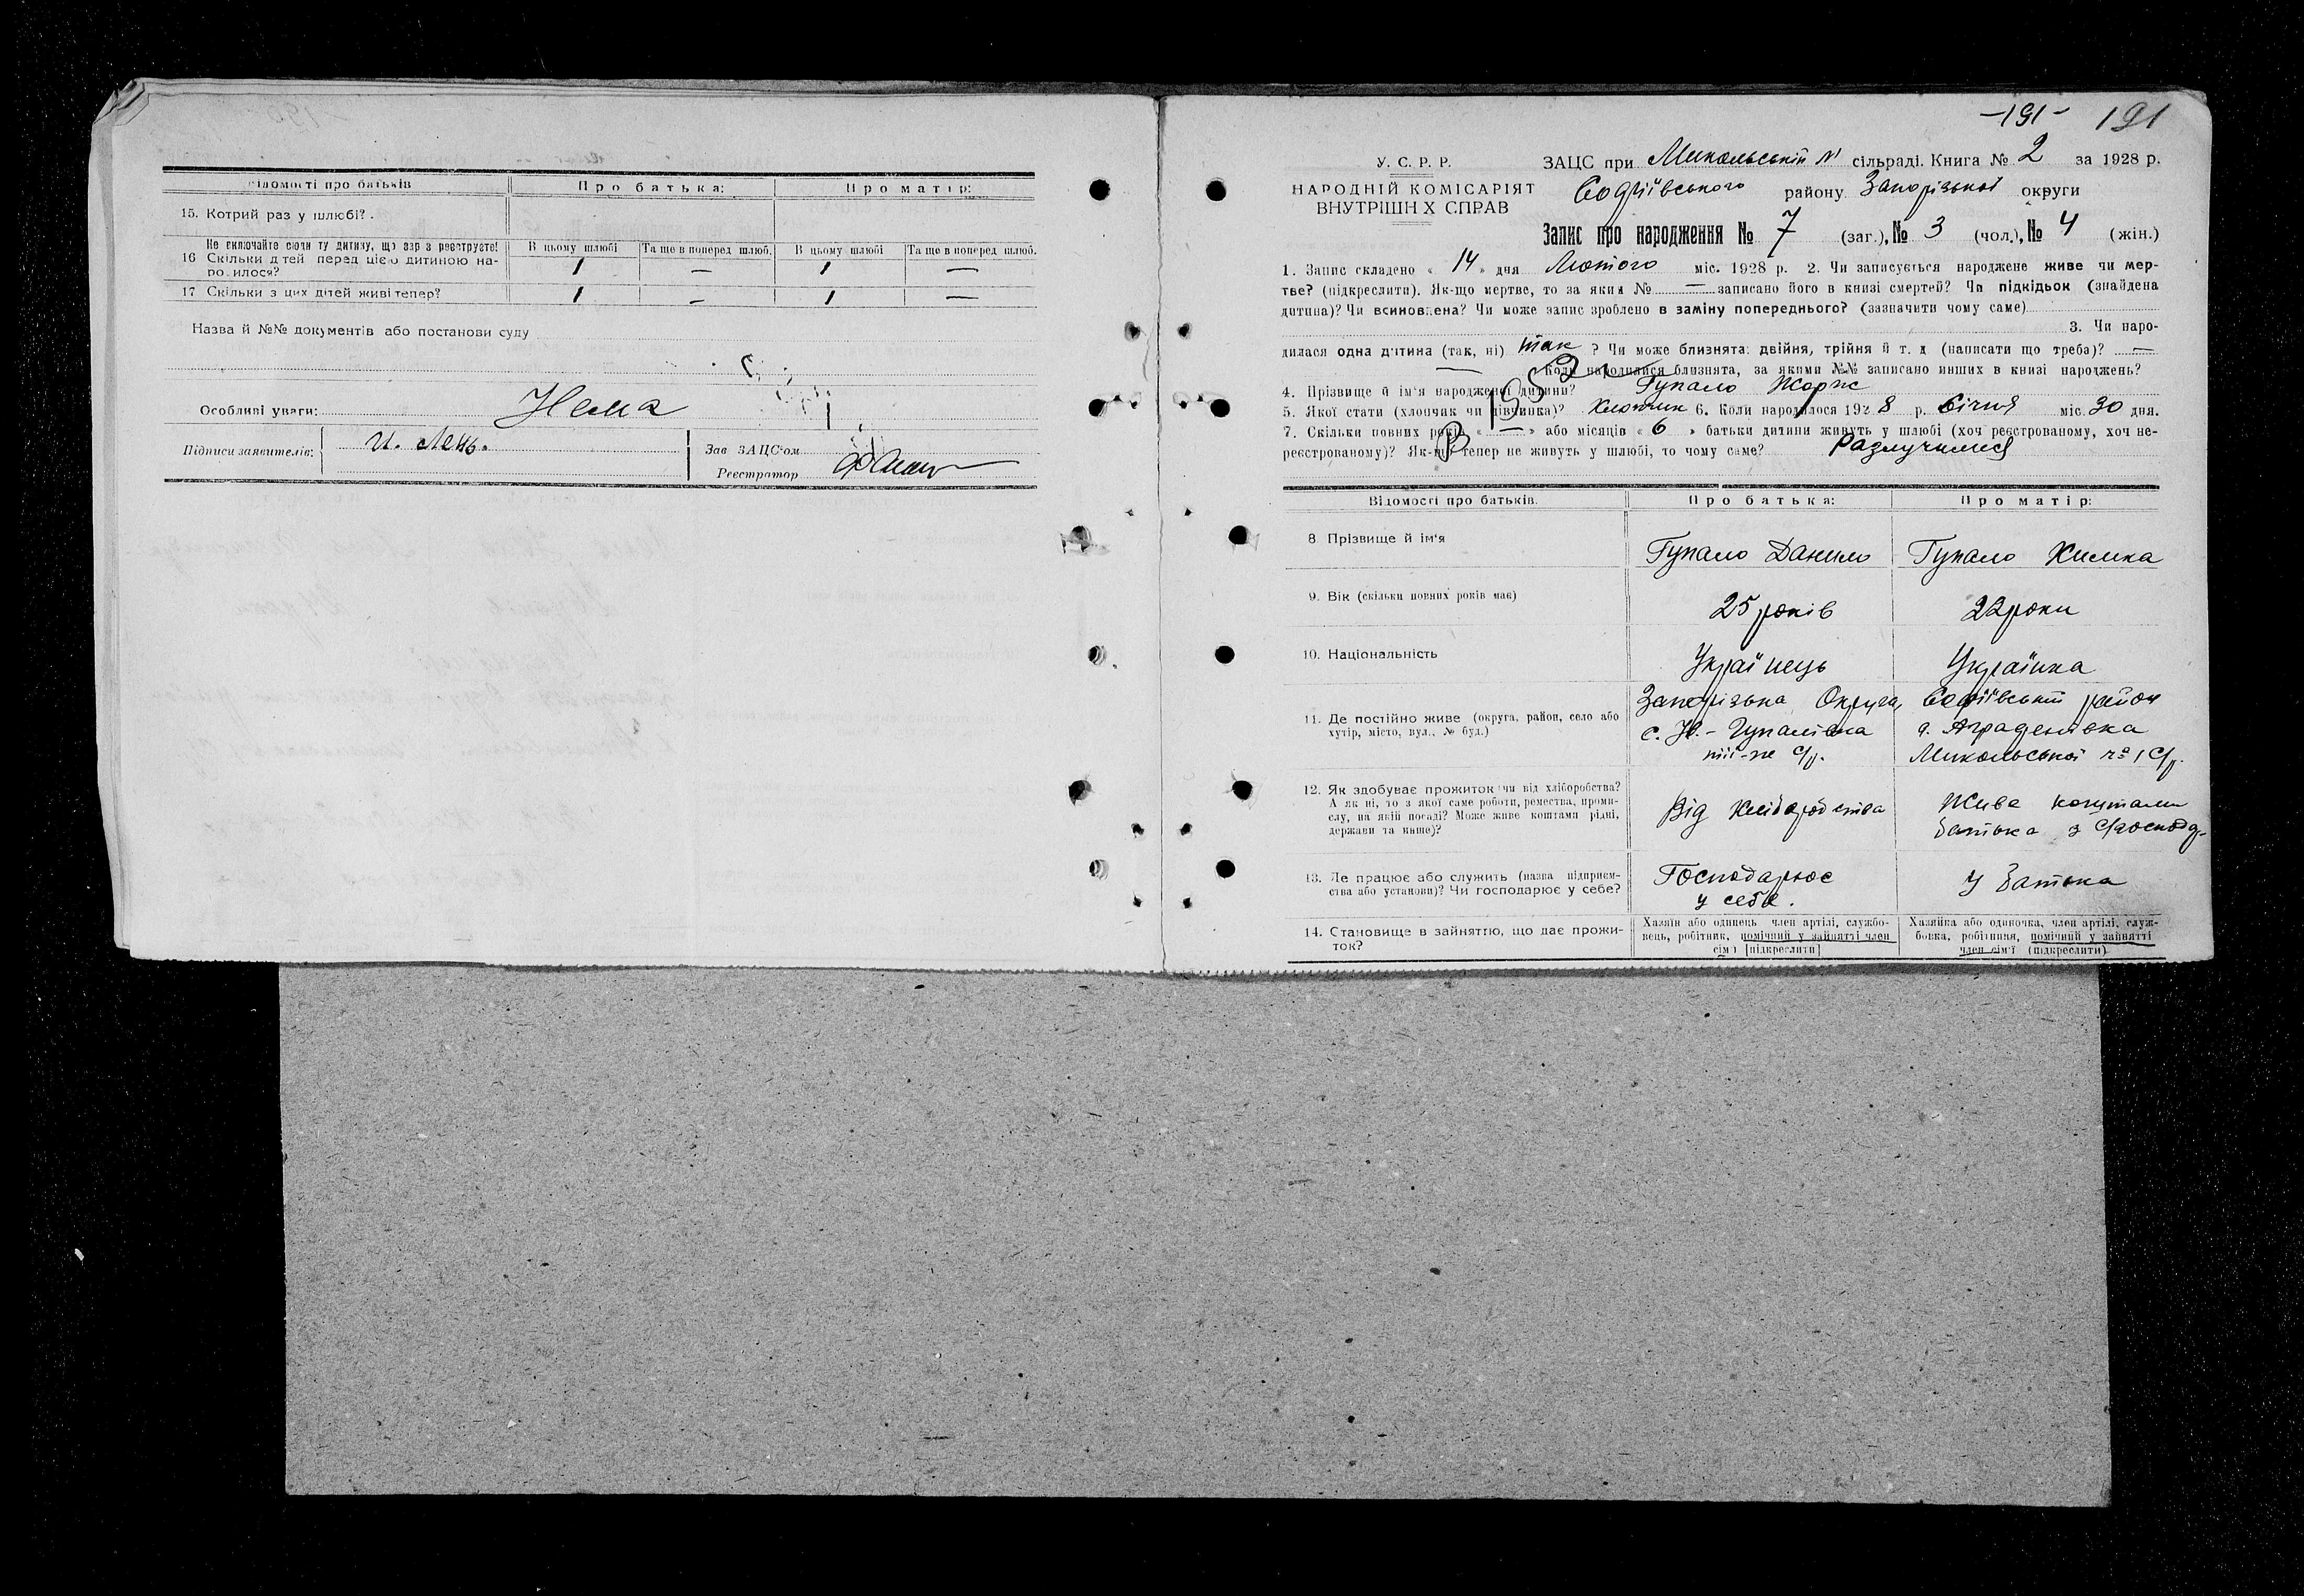 Відомості про батьків Про батька: Про матір:
15. Котрий раз у шлюбі?
Не включайте сюди ту дитину, що зараз реєструєте! В цьому шлюбі Та ще в поперед шлюб. В цьому шлюбі Та ще в поперед шлюб.
16 Скільки дітей перед цією дитиною на-
родилося? 1 — 1 —
17 Скільки з цих дітей живі тепер? 1 — 1 —
Назва й №№ документів або постанови суду
Особливі уваги: Нема
Підписи заявителів: И. Лень. Зав ЗАЦС'ом
Реєстратор
-191- 191
У. С. Р. Р.
НАРОДНІЙ КОМІСАРІЯТ
ВНУТРІШНІХ СПРАВ
ЗАЦС при Микольській №1 сільраді. Книга № 2 за 1928 р.
Софіївського району Запорізької округи
Запис про народження № 7 (заг.), № 3 (чол.), № 4 (жін.)
1. Запис складено « 14 » дня Лютого міс. 1928 р. 2. Чи записується народжене живе чи мер-
тве? (підкреслити). Як-що мертве, то за яким № — записано його в книзі смертей? Чи підкідьок (знайдена
дитина)? Чи всиновлена? Чи може запис зроблено в заміну попереднього? (зазначити чому саме)
3. Чи наро-
дилася одна дитина (так, ні) так ? Чи може близнята: двійня, трійня й т. д. (написати що треба)? —
— Коли народилися близнята, за якими №№ записано инших в книзі народжень?
4. Прізвище й ім'я народженої дитини? Гупало Жорж
5. Якої стати (хлопчик чи дівчинка)? Хлопчик 6. Коли народилося 1928 р. Січня міс. 30 дня.
7. Скільки повних років « — » або місяців « 6 » батьки дитини живуть у шлюбі (хоч реєстрованому, хоч не-
реєстрованому)? Як-що тепер не живуть у шлюбі, то чому саме? Разлучилися
Відомості про батьків. Про батька: Про матір:
8 Прізвище й ім'я Гупало Данило Гупало Килина
9. Вік (скільки повних років має) 25 років 22 роки
10. Національність Українець Українка
11. Де постійно живе (округа, район, село або
хутір, місто, вул., № буд.)
Запорізька Округа,
с. Н.-Гупалівка
тії-же с/р.
Софіївський район
Микольської №1 С/р.
12. Як здобуває прожиток чи від хліборобства?
А як ні, то з якої саме роботи, ремества, проми-
слу, на якій посаді? Може живе коштами рідні,
держави та инше)?
Від хліборобства
Живе коштами
батька з
13. Де працює або служить (назва підприєм-
ства або установи)? Чи господарює у себе?
Господарює
у себе.
У батька
14. Становище в зайняттю, що дає прожи-
ток?
Хазяїн або одинець член артілі, службо-
вець, робітник, помічний у зайнятті член
сім'ї [підкреслити]
Хазяйка або одиночка, член артілі, служ-
бовка, робітниця, помічний у зайнятті
член сім'ї (підкреслити)